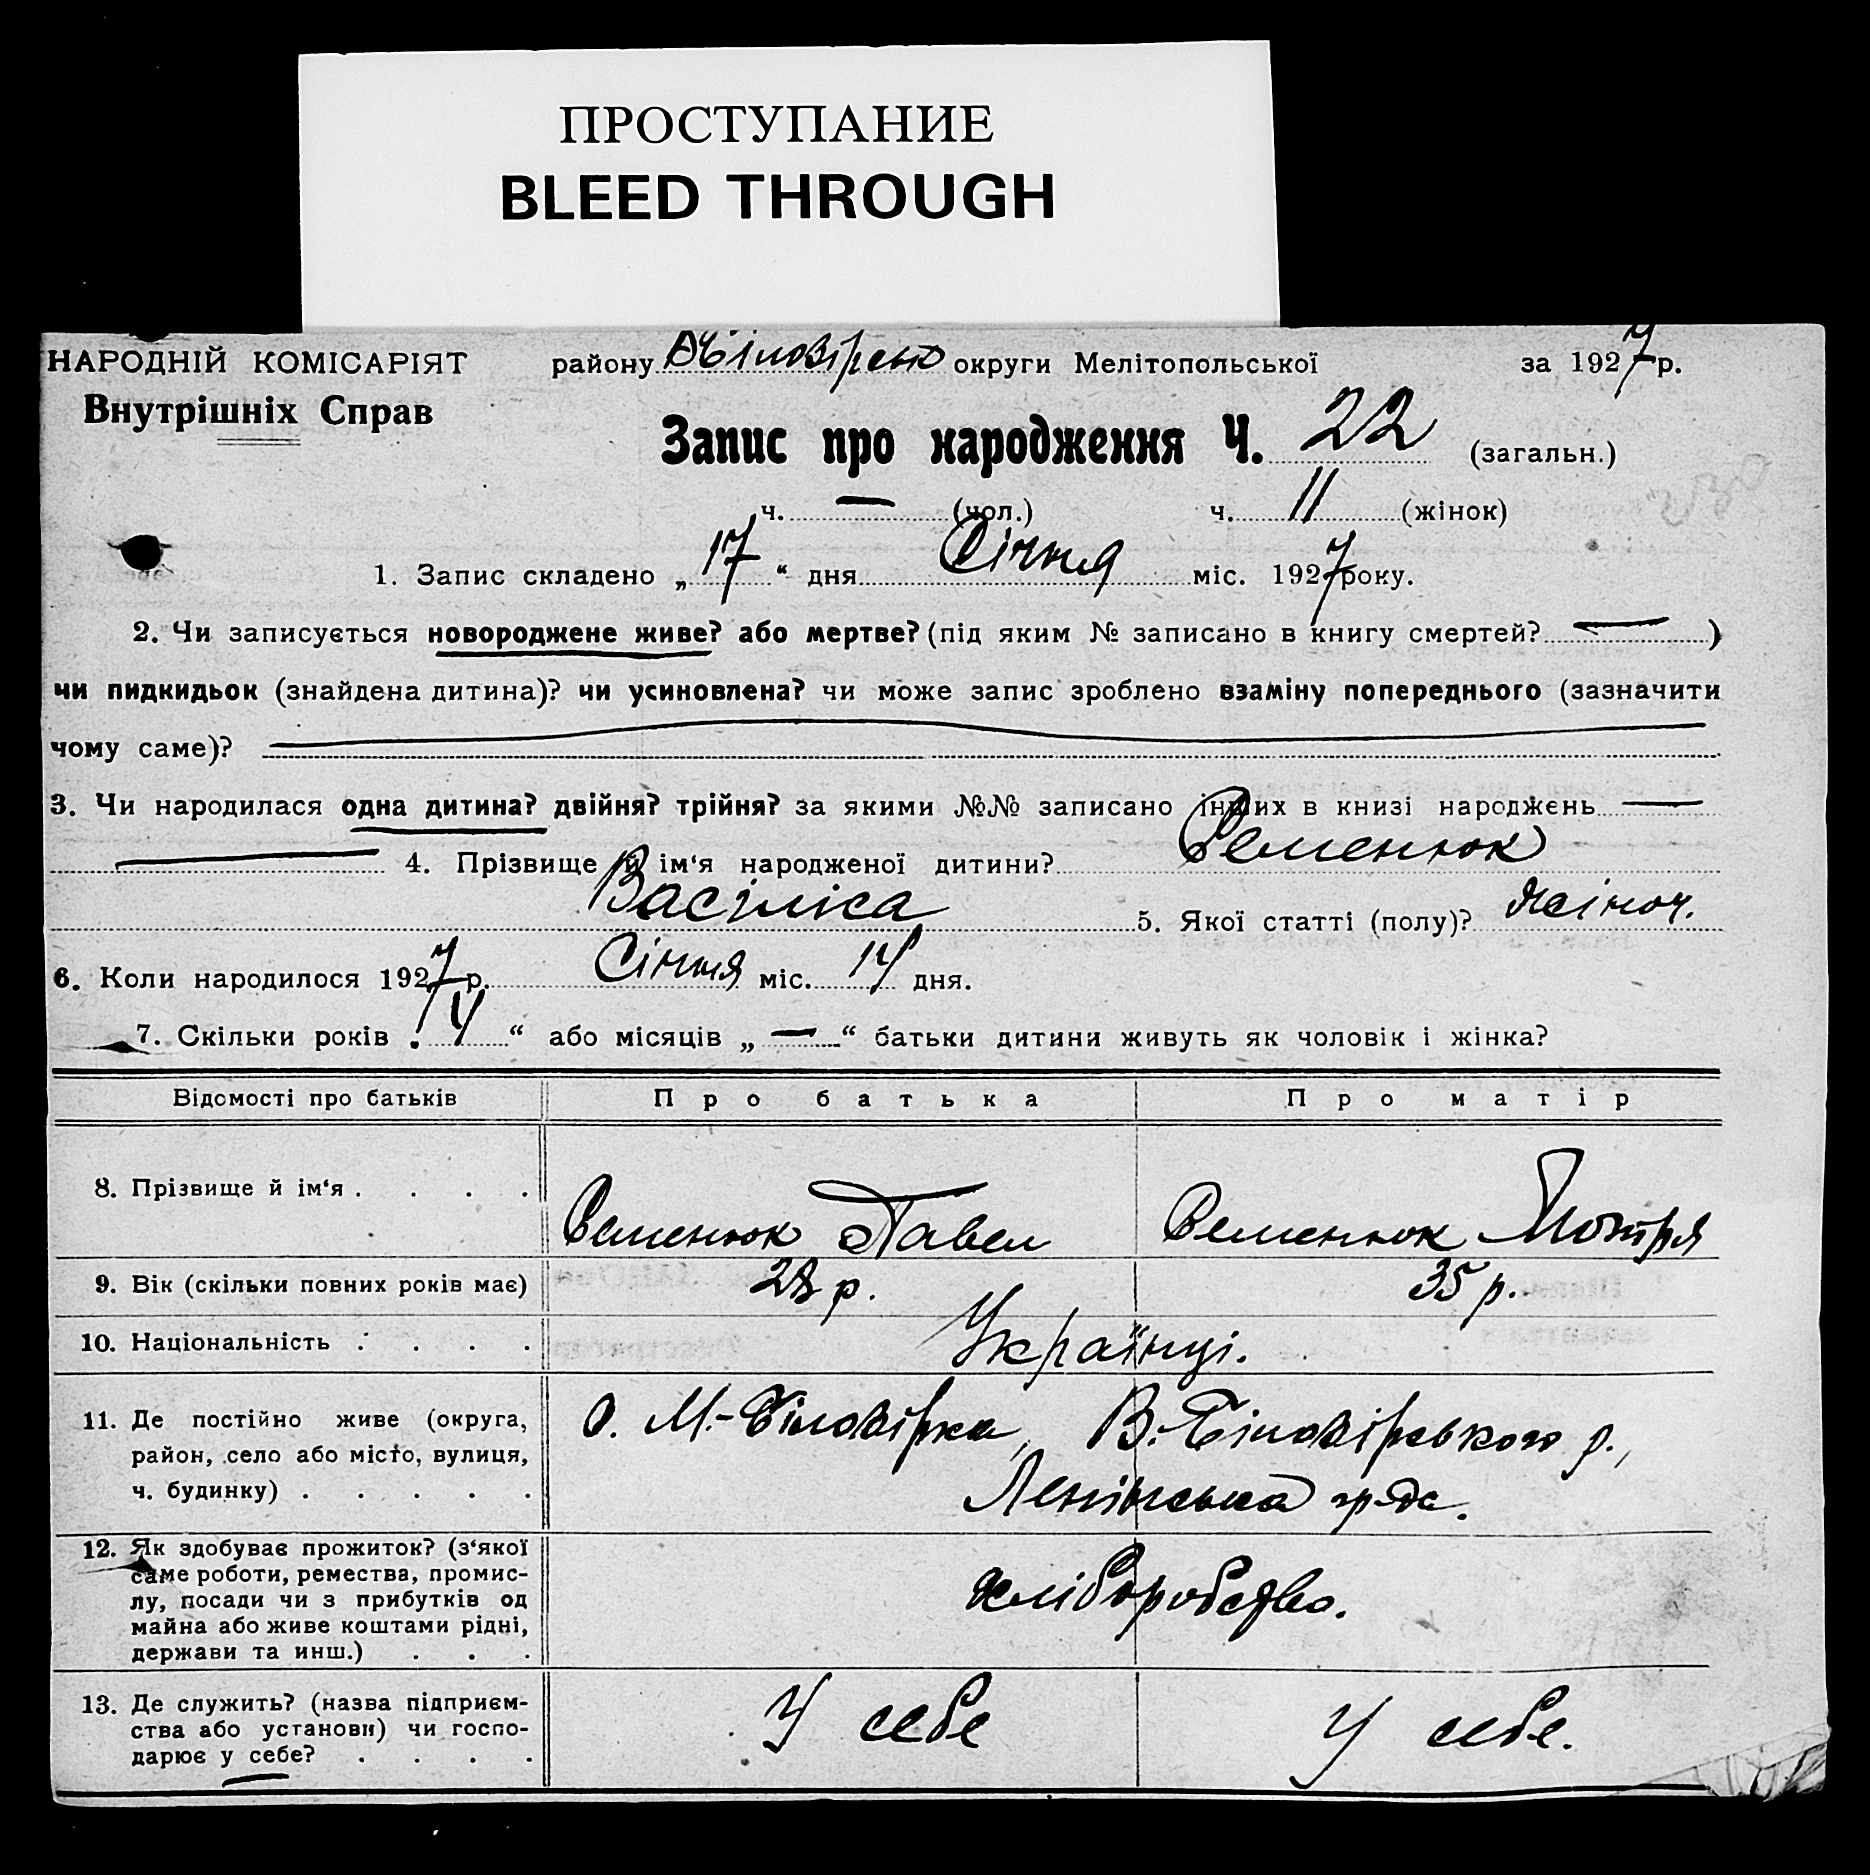 ПРОСТУПАНИЕ
BLEED THROUGH
НАРОДНІЙ КОМІСАРІЯТ району округи Мелітопольської за 1927 р.
Внутрішніх Справ
Запис про народження Ч. 22 (загальн.)
ч. — (чол.) ч. 11 (жінок)
1. Запис складено „ 17 “ дня Січня міс. 1927 року.
2. Чи записується новороджене живе? або мертве? (під яким № записано в книгу смертей? — )
чи пидкидьок (знайдена дитина)? чи усиновлена? чи може запис зроблено взаміну попереднього (зазначити
чому саме)? —
3. Чи народилася одна дитина? двійня? трійня? за якими №№ записано інших в книзі народжень —
— 4. Прізвище й ім‘я народженої дитини? Семенюк
Васіліса 5. Якої статті (полу)? жіноч.
6. Коли народилося 1927 р. Січня міс. 14 дня.
7. Скільки років „ 4 “ або місяців „ — “ батьки дитини живуть як чоловік і жінка?
Відомості про батьків Про батька Про матір
8. Прізвище й ім‘я . . . . Семенюк Павел Семенюк Мотря
9. Вік (скільки повних років має) 28 р. 35 р.
10. Національність . . . . Українці.
11. Де постійно живе (округа, с. М.-Білозірка, В.-Білозірського р.,
район, село або місто, вулиця,
ч. будинку) . . . . . Ленінська
12. Як здобуває прожиток? (з‘якої
саме роботи, ремества, промис-
лу, посади чи з прибутків од хліборобство.
майна або живе коштами рідні,
держави та инш.) . . .
13. Де служить? (назва підприєм- У себе У себе.
ства або установи) чи госпо-
дарює у себе? . . . .